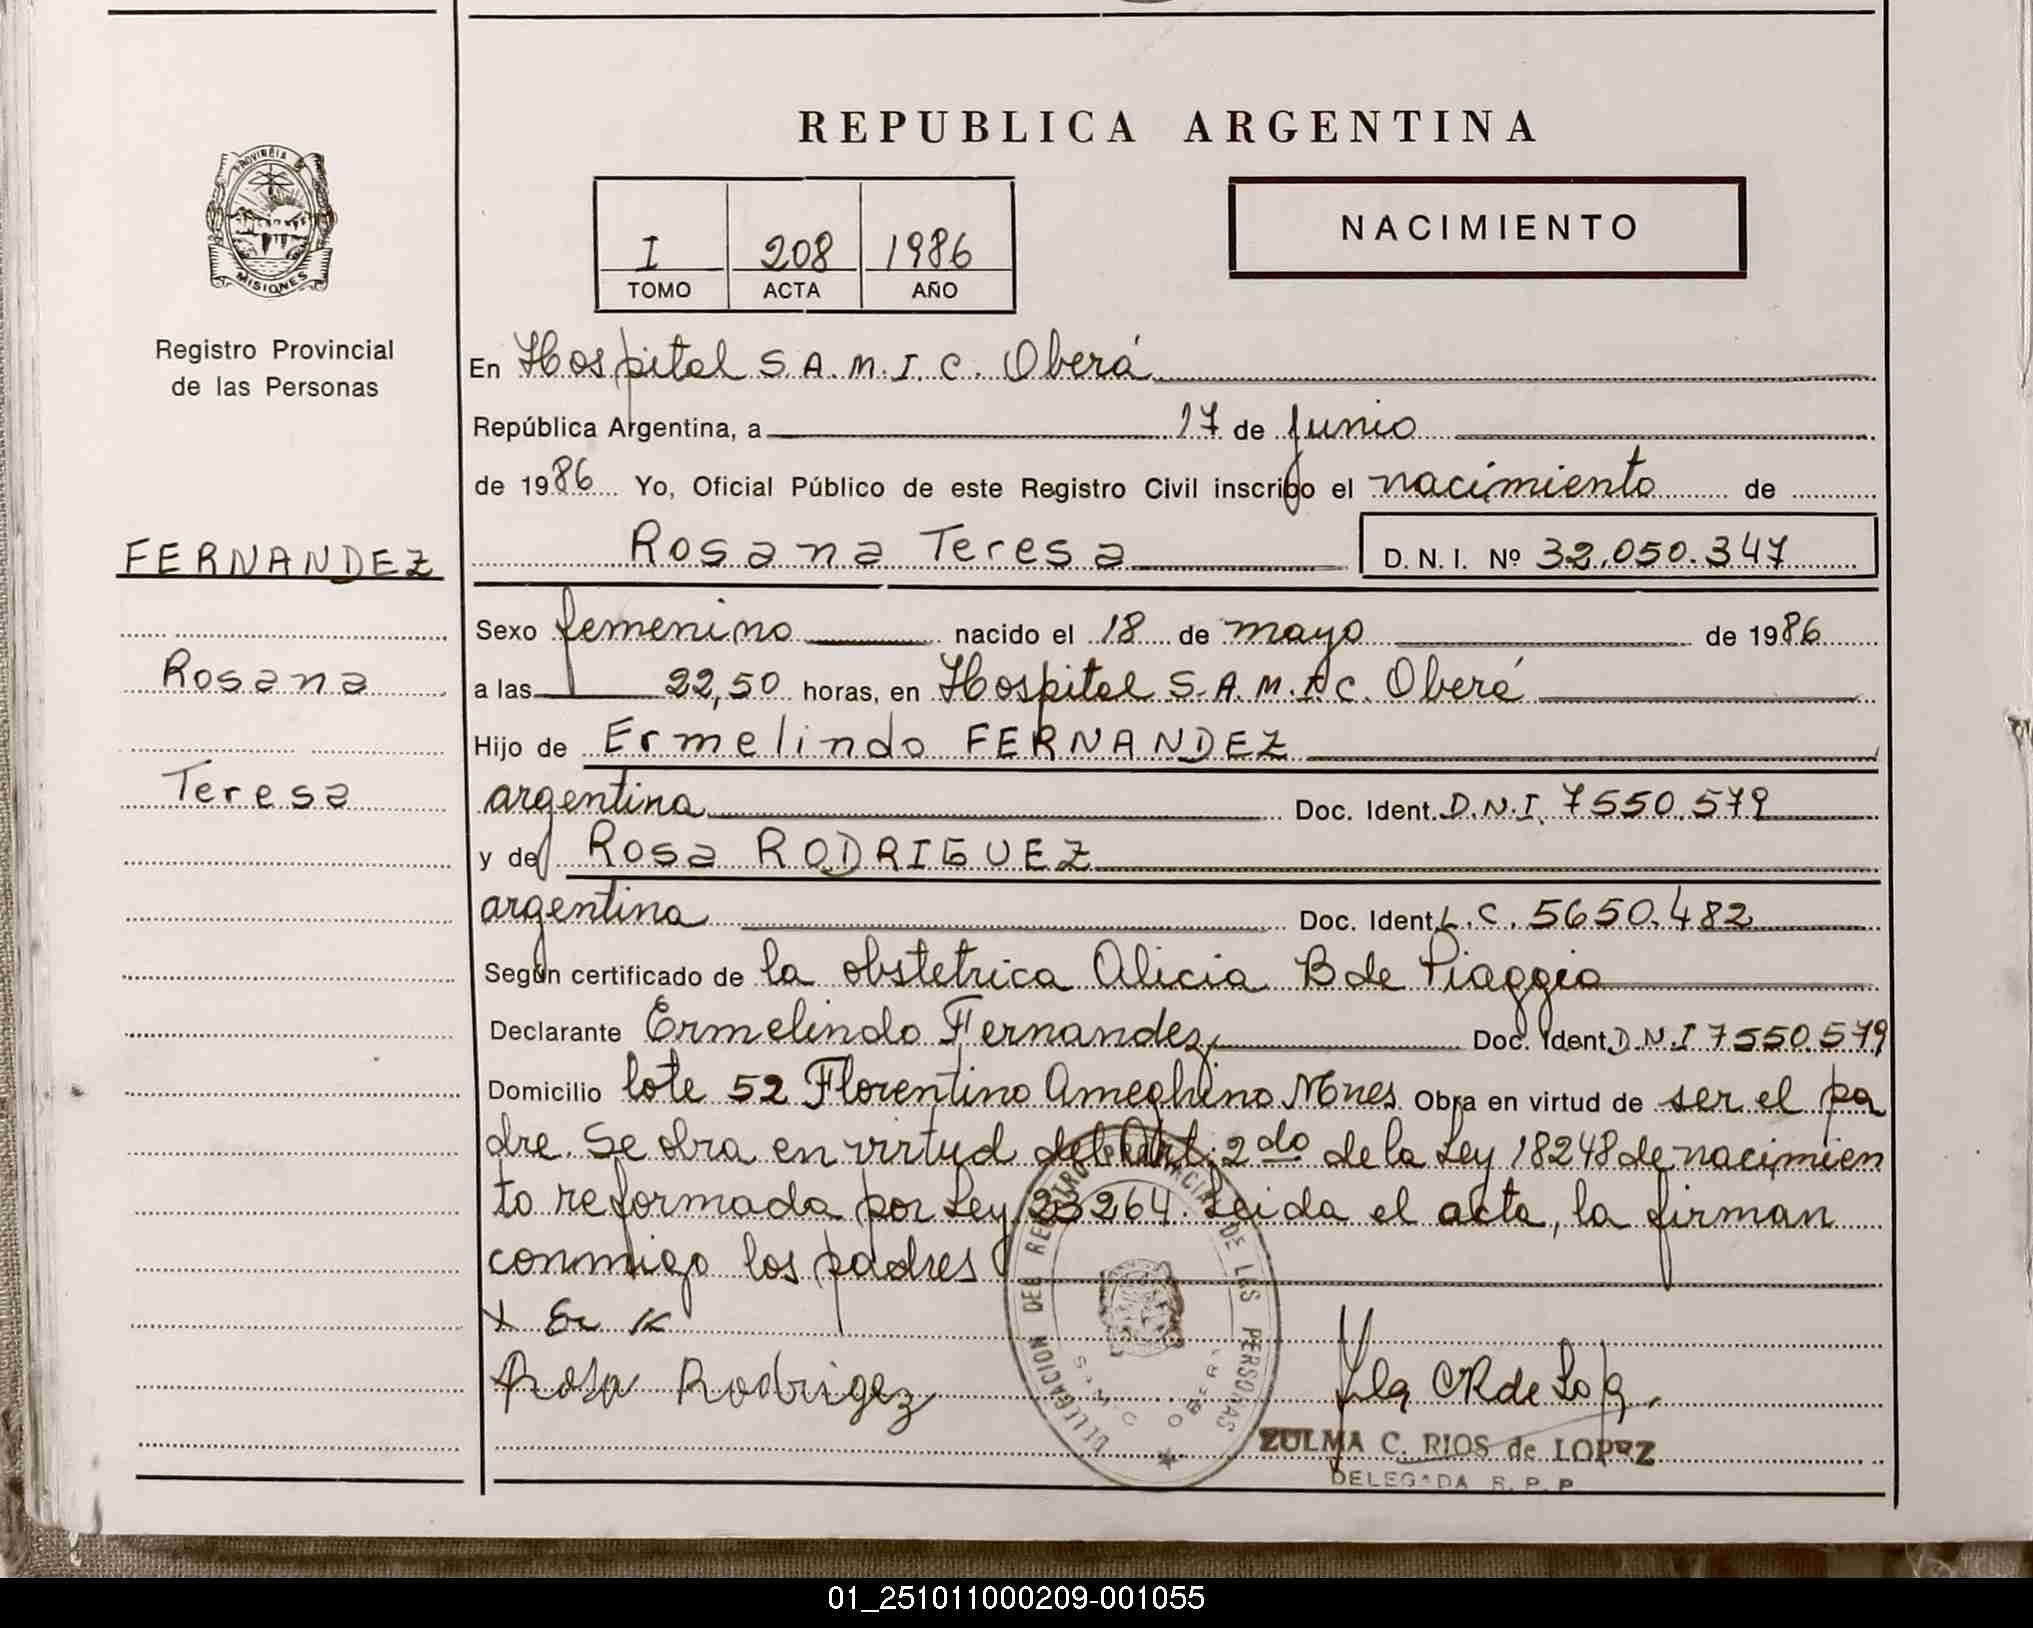 REPUBLICA ARGENTINA
PROVINCIA DE
MISIONES
Registro Provincial
de las Personas
I 208 1986
TOMO ACTA AÑO
NACIMIENTO
En Hospital S.A.M.I.C. Oberá
República Argentina, a 17 de junio
de 1986 Yo, Oficial Público de este Registro Civil inscribo el nacimiento de
Rosana Teresa D. N. I. Nº 32.050.347
FERNANDEZ
Rosana
Teresa
Sexo femenino nacido el 18 de mayo de 1986
a las 22,50 horas, en Hospital S.A.M.I.C. Oberá
Hijo de Ermelindo FERNANDEZ
argentina Doc. Ident. D.N.I. 7550.579
y de Rosa RODRIGUEZ
argentina Doc. Ident. L.C. 5650.482
Según certificado de la obstetrica Alicia B de Piaggio
Declarante Ermelindo Fernandez Doc. Ident. D.N.I 7550.579
Domicilio lote 52 Florentino Ameghino Mnes Obra en virtud de ser el pa
dre. Se obra en virtud del Art. 2do de la Ley 18248 de nacimien
to reformada por Ley 23264. Leida el acta, la firman
conmigo los padres
Rosa Rodrigez
DELEGACION DEL REGISTRO PROVINCIAL DE LAS PERSONAS
ZULMA C. RIOS de LOPEZ
DELEGADA R. P. P.
01_251011000209-001055